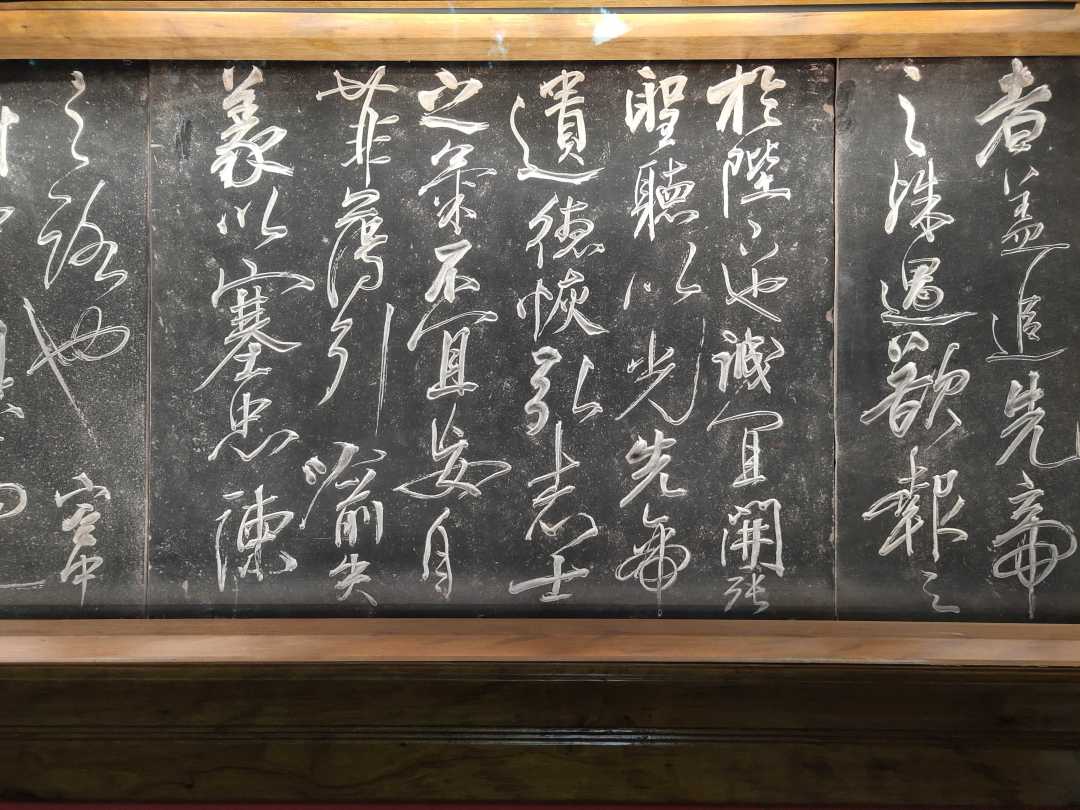 者盖追先帝
之殊遇欲報之
於陛下也誠宜開張
聖聽以光先帝
遺德恢弘志士
之氣不宜妄自
菲薄引喻失
義以塞忠諫
之路也宮中